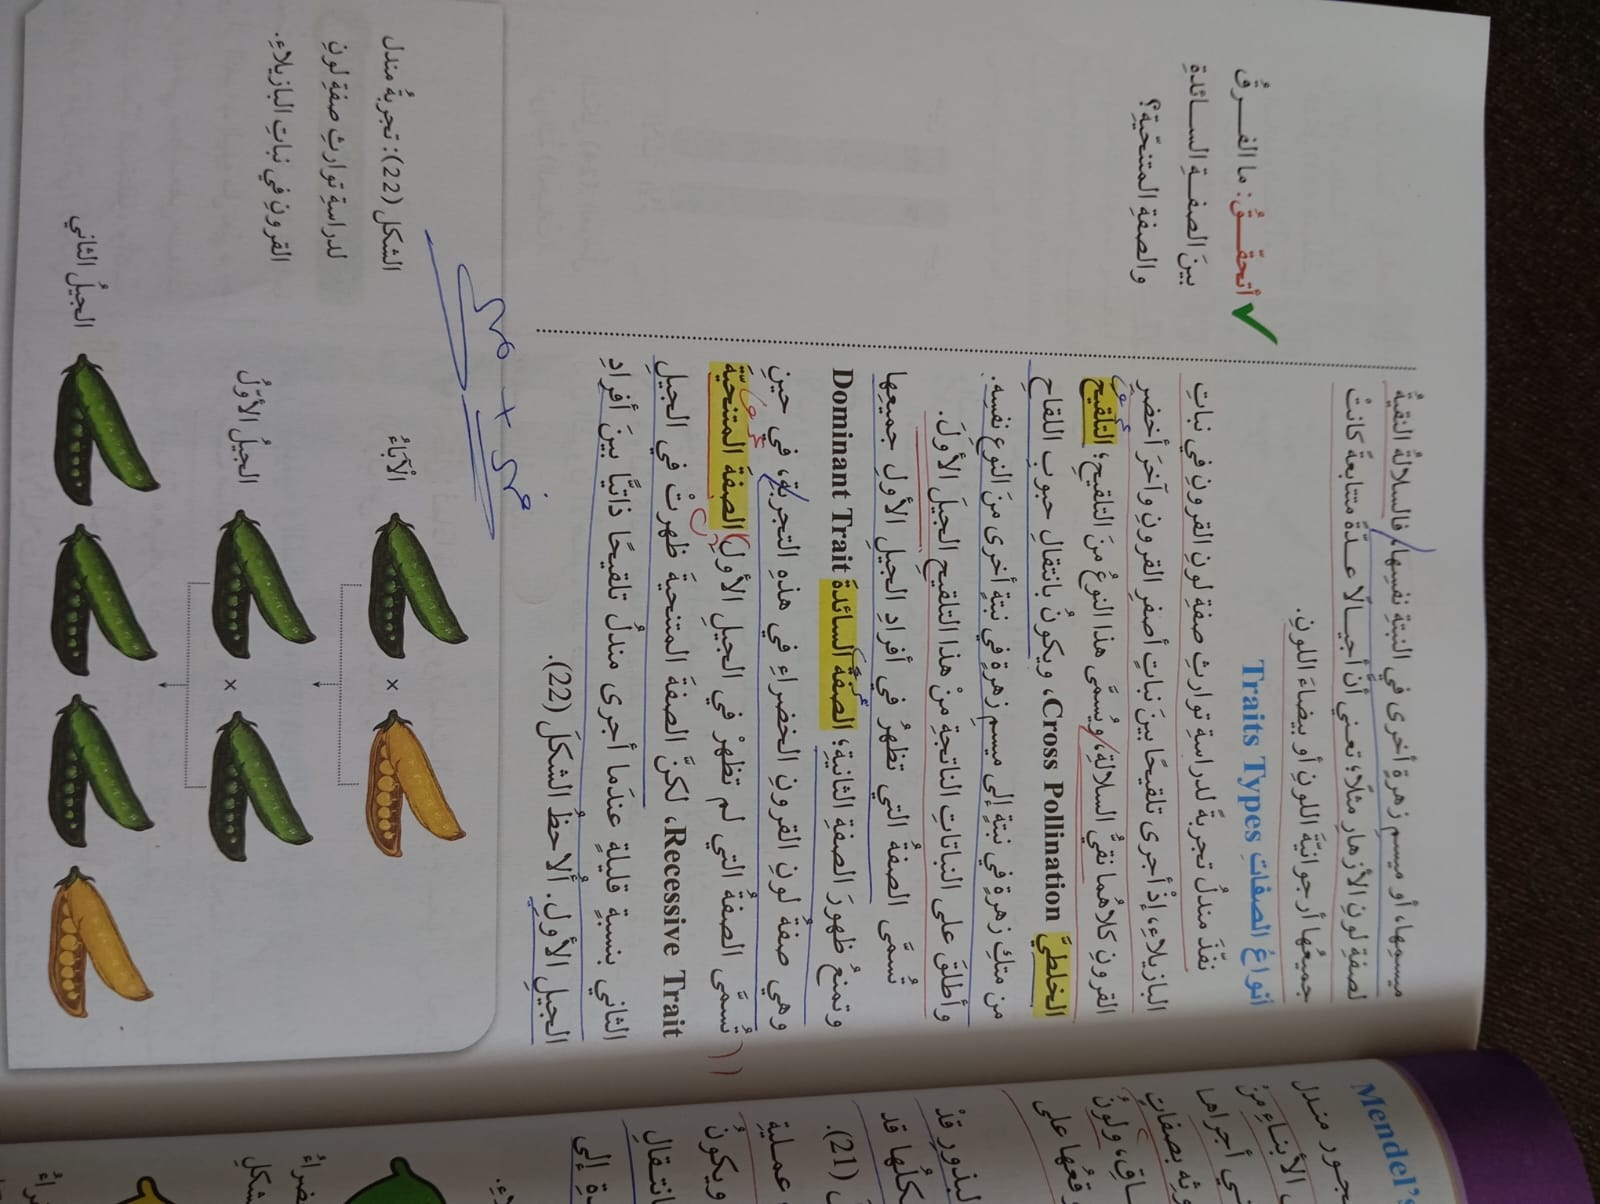 ميسمِها، أو ميسمِ زهرةٍ أخرى في النبتةِ نفسِها، فالسلالةُ النقيةُ
لصفةِ لونِ الأزهارِ مثلًا؛ تعني أنَّ أجيالًا عدّةً متتابعةً كانتْ
جميعُها أرجوانيّةَ اللونِ أو بيضاءَ اللونِ.
أنواعُ الصفاتِ Traits Types
نفّذَ مندلُ تجربةً لدراسةِ توارثِ صفةِ لونِ القرونِ في نباتِ
البازيلاءِ، إذْ أجرى تلقيحًا بينَ نباتٍ أصفرِ القرونِ وآخرَ أخضرِ
القرونِ كلاهُما نقيُّ السلالةِ، ويُسمّى هذا النوعُ منَ التلقيحِ؛ التلقيح
الخلطيَّ Cross Pollination، ويكونُ بانتقالِ حبوبِ اللقاحِ
من متكِ زهرةٍ في نبتةٍ إلى ميسمِ زهرةٍ في نبتةٍ أخرى منَ النوعِ نفسِه.
وأطلقَ على النباتاتِ الناتجةِ منْ هذا التلقيحِ الجيلَ الأولَ.
تُسمّى الصفةُ التي تظهرُ في أفرادِ الجيلِ الأولِ جميعِها
وتمنعُ ظهورَ الصفةِ الثانيةِ؛ الصفةَ السائدةَ Dominant Trait
وهي صفةُ لونِ القرونِ الخضراءِ في هذهِ التجربةِ، في حينِ
تُسمّى الصفةُ التي لم تظهرْ في الجيلِ الأولِ الصفةَ المتنحيةَ
Recessive Trait، لكنَّ الصفةَ المتنحيةَ ظهرتْ في الجيلِ
الثاني بنسبةٍ قليلةٍ عندَما أجرى مندلُ تلقيحًا ذاتيًّا بينَ أفرادِ
الجيلِ الأولِ. أُلاحظُ الشكلَ (22).
✓ أتحقّقُ: ما الفرقُ
بينَ الصفةِ السائدةِ
والصفةِ المتنحّيةِ؟
الشكل (22): تجربةُ مندل
لدراسةِ توارثِ صفةِ لونِ
القرونِ في نباتِ البازيلاءِ.
الآباءُ
×
الجيلُ الأوّلُ
×
الجيلُ الثاني
Mendel's
جور مندل
(21).